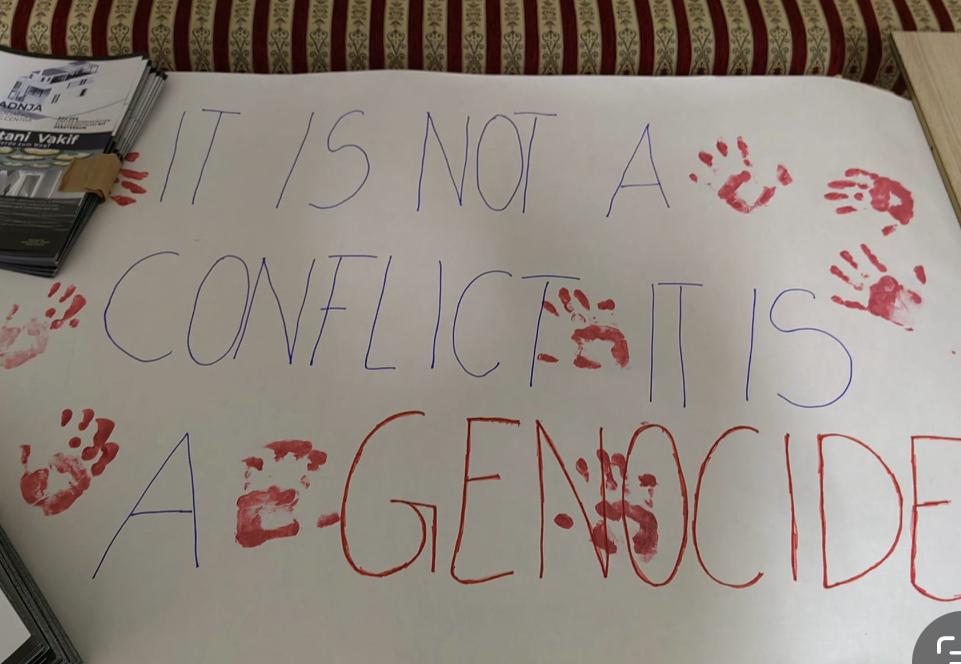 ADNJA
tani Vakif
IT IS NOT A
CONFLICT IT IS
A GENOCIDE